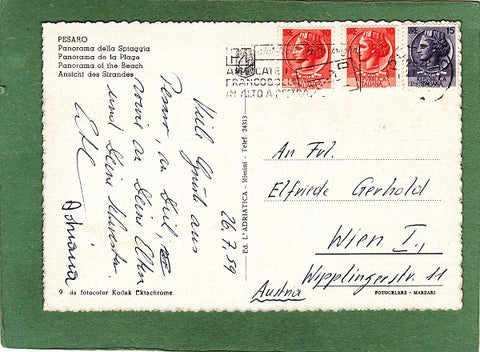 PESARO
Panorama della Spiaggia
Panorama de la Plage
Panorama of the Beach
Ansicht des Strandes
Viele Grüße aus
Pesaro, an Dich,
sowie an Deine Eltern
und Deine Schwester.
Adriana
26.7.59
9 da fotocolor Kodak Ektachrome
Ed. L'ADRIATICA - Rimini - Telef. 24313
FRANCOBOLLI
IN ALTO A DESTRA
10
10
15
An Frl.
Elfriede Gerhold
Wien I.,
Wipplingerstr. 11
Austria
FOTOCELERE - MARZARI